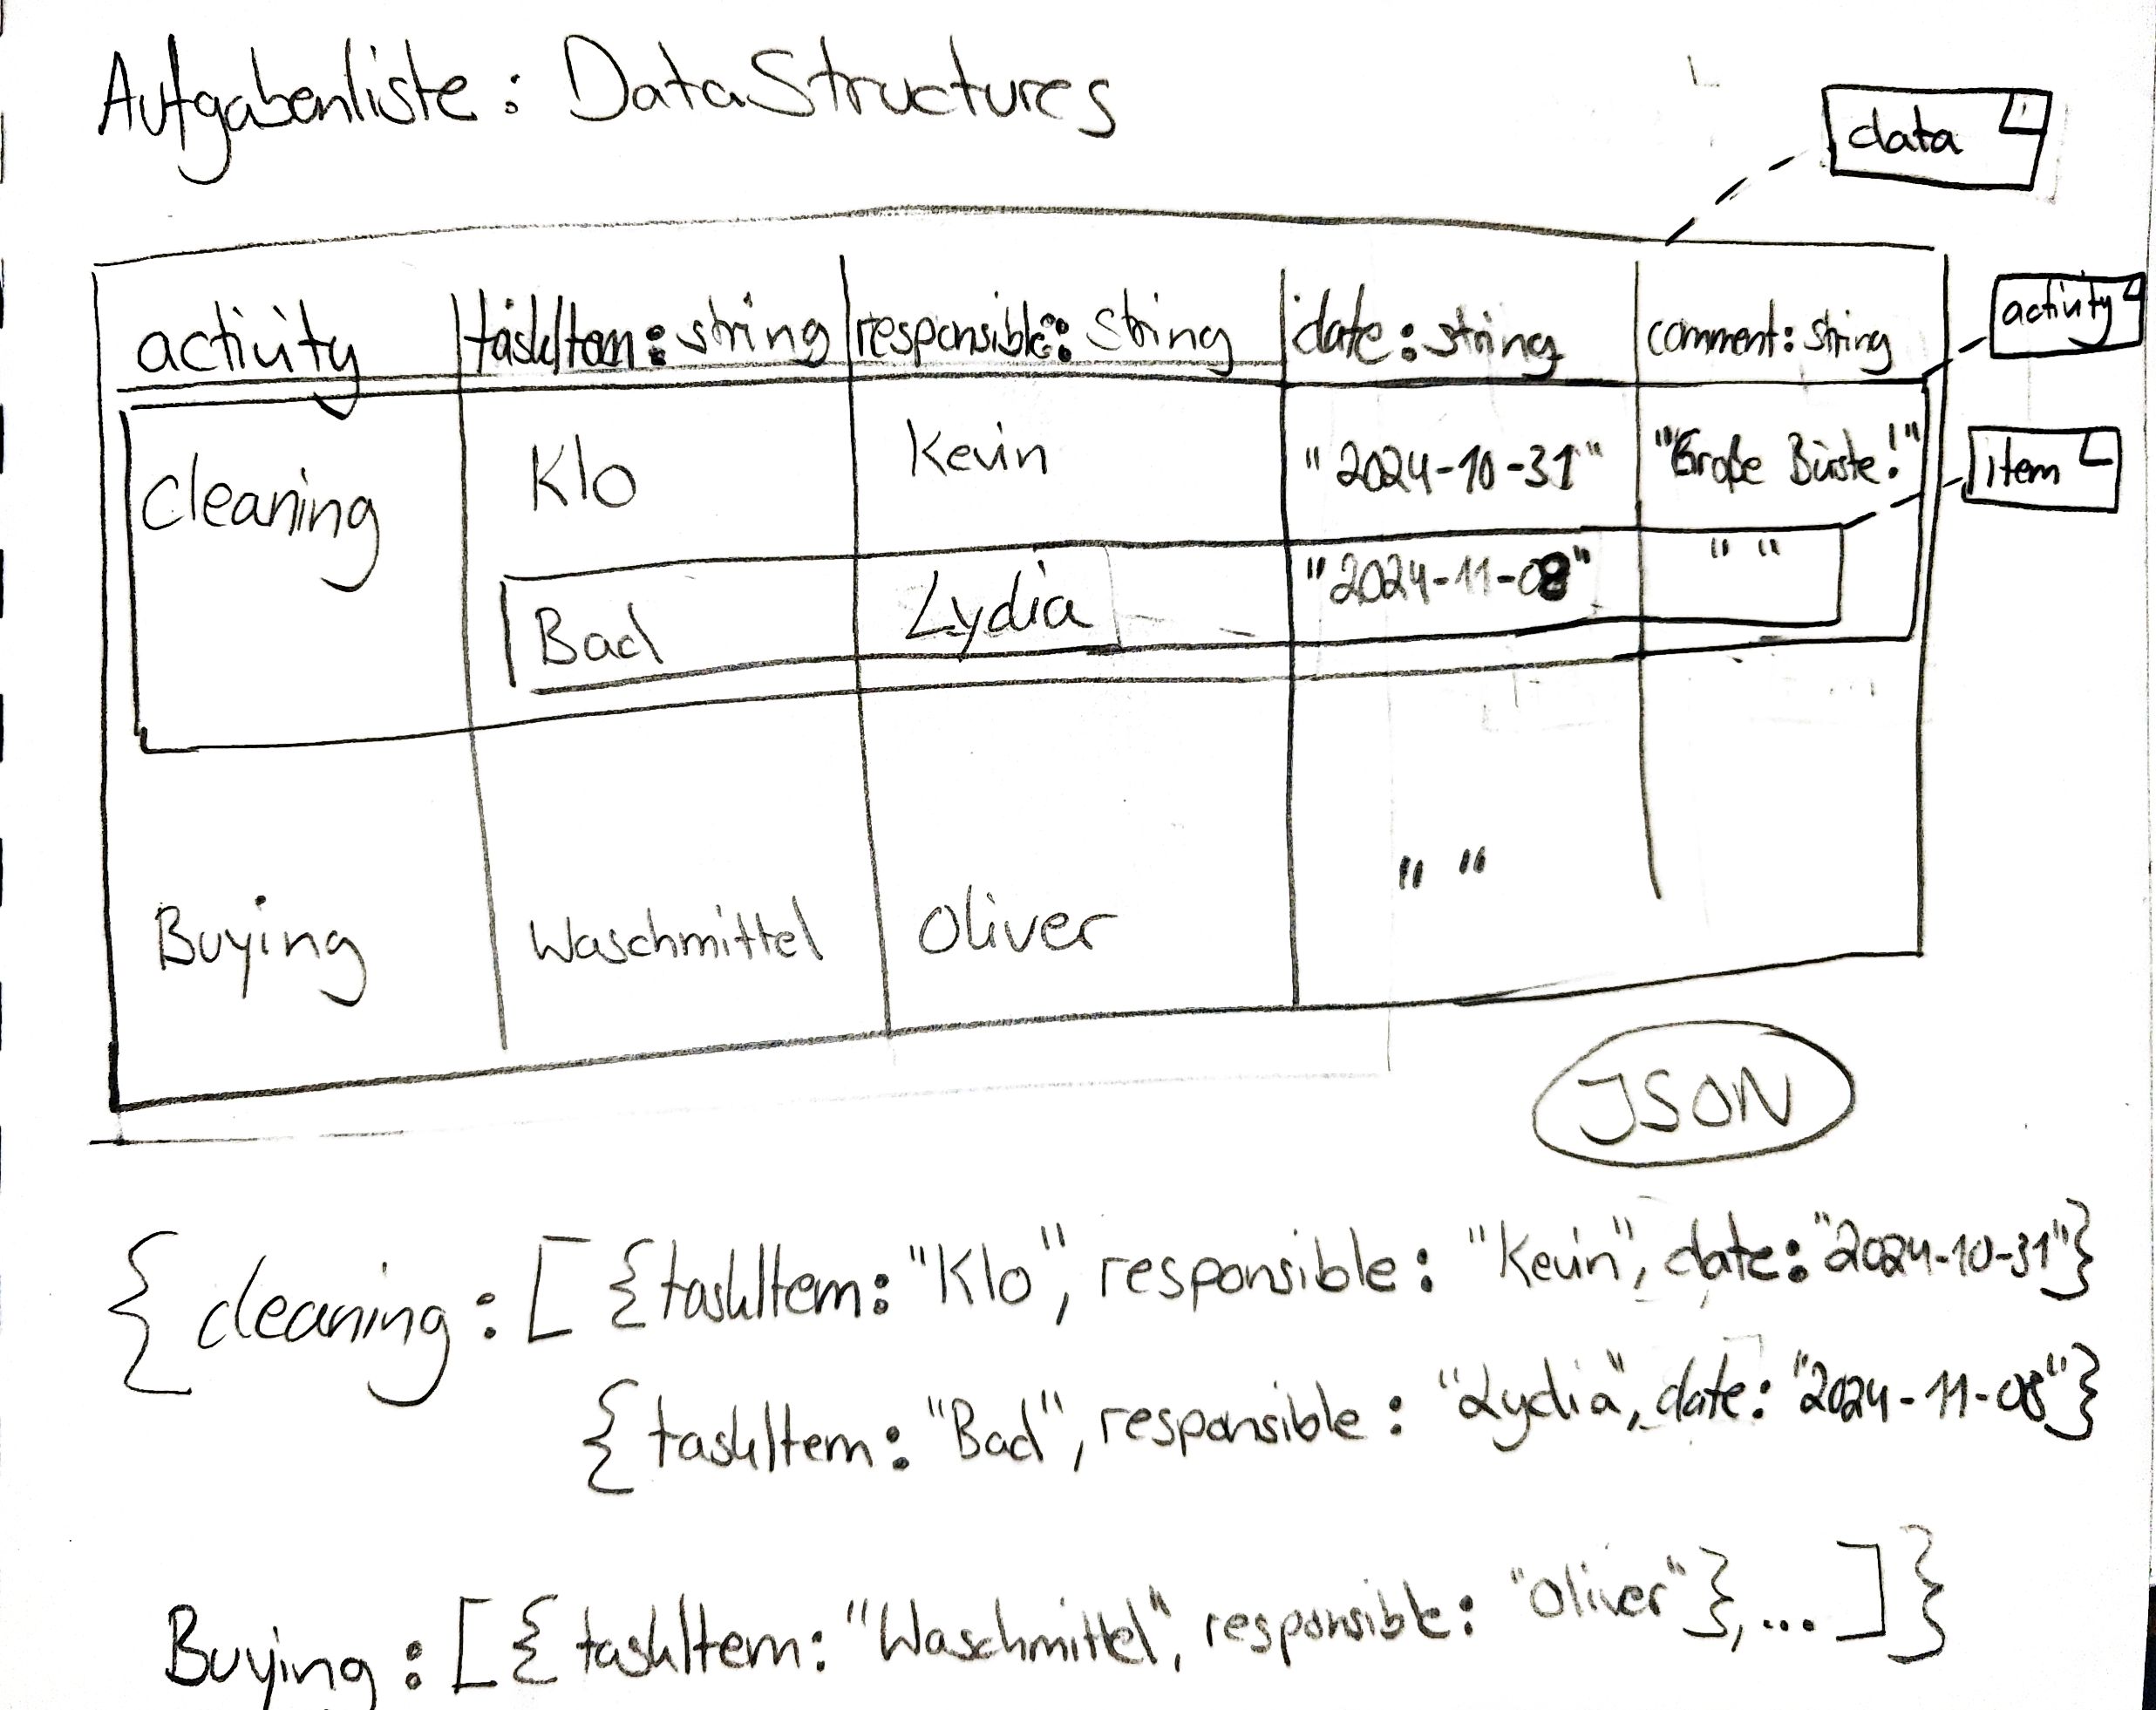 Aufgabenliste: DataStructures
data
activity
taskItem: string
responsible: string
date: string
comment: string
activity
cleaning
Klo
Kevin
"2024-10-31"
"Große Bürste!"
item
Bad
Lydia
"2024-11-08"
" "
Buying
Waschmittel
Oliver
" "
JSON
{cleaning: [{taskItem: "Klo", responsible: "Kevin", date: "2024-10-31"}
{taskItem: "Bad", responsible: "Lydia", date: "2024-11-08"}
Buying: [{taskItem: "Waschmittel", responsible: "Oliver"},...]}